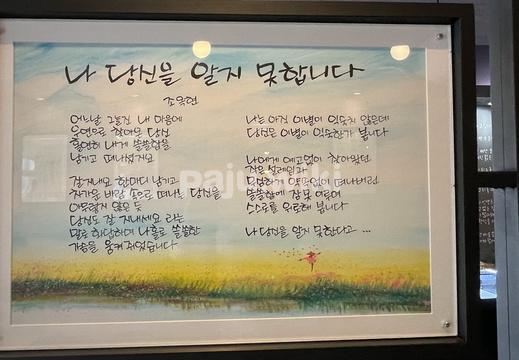 나 당신을 알지 못합니다
조옥현
어느날 그토록 내 마음에
우연으로 찾아온 당신
홀연히 내게 쓸쓸함을
남기고 떠나셨지요
잘지내요 한마디 남기고
차가운 바람 속으로 떠나는 당신을
아무렇지 않은 듯
당신도 잘 지내세요 라는
말로 화답하며 나홀로 쓸쓸한
가슴을 움켜 쥐었습니다
나는 아직 이별이 익숙지 않은데
당신은 이별이 익숙한가 봅니다
나에게 예고없이 찾아왔던
작은 설레임과
말없이 떠나버린
쓸쓸함에 잠 못 이루며
스스로를 위로해 봅니다
나 당신을 알지 못한다고 ...